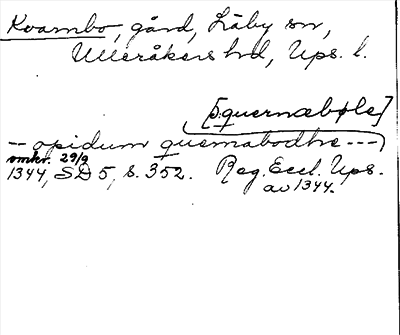 Kvarnbo, gård, Läby sn,
Ulleråkers hd, Ups. l.
[quernæbole]
-- opidum quernabodhe ---
omkr. 29/9
1344, SD 5, s. 352. Reg. Eccl. Ups.
av 1344.